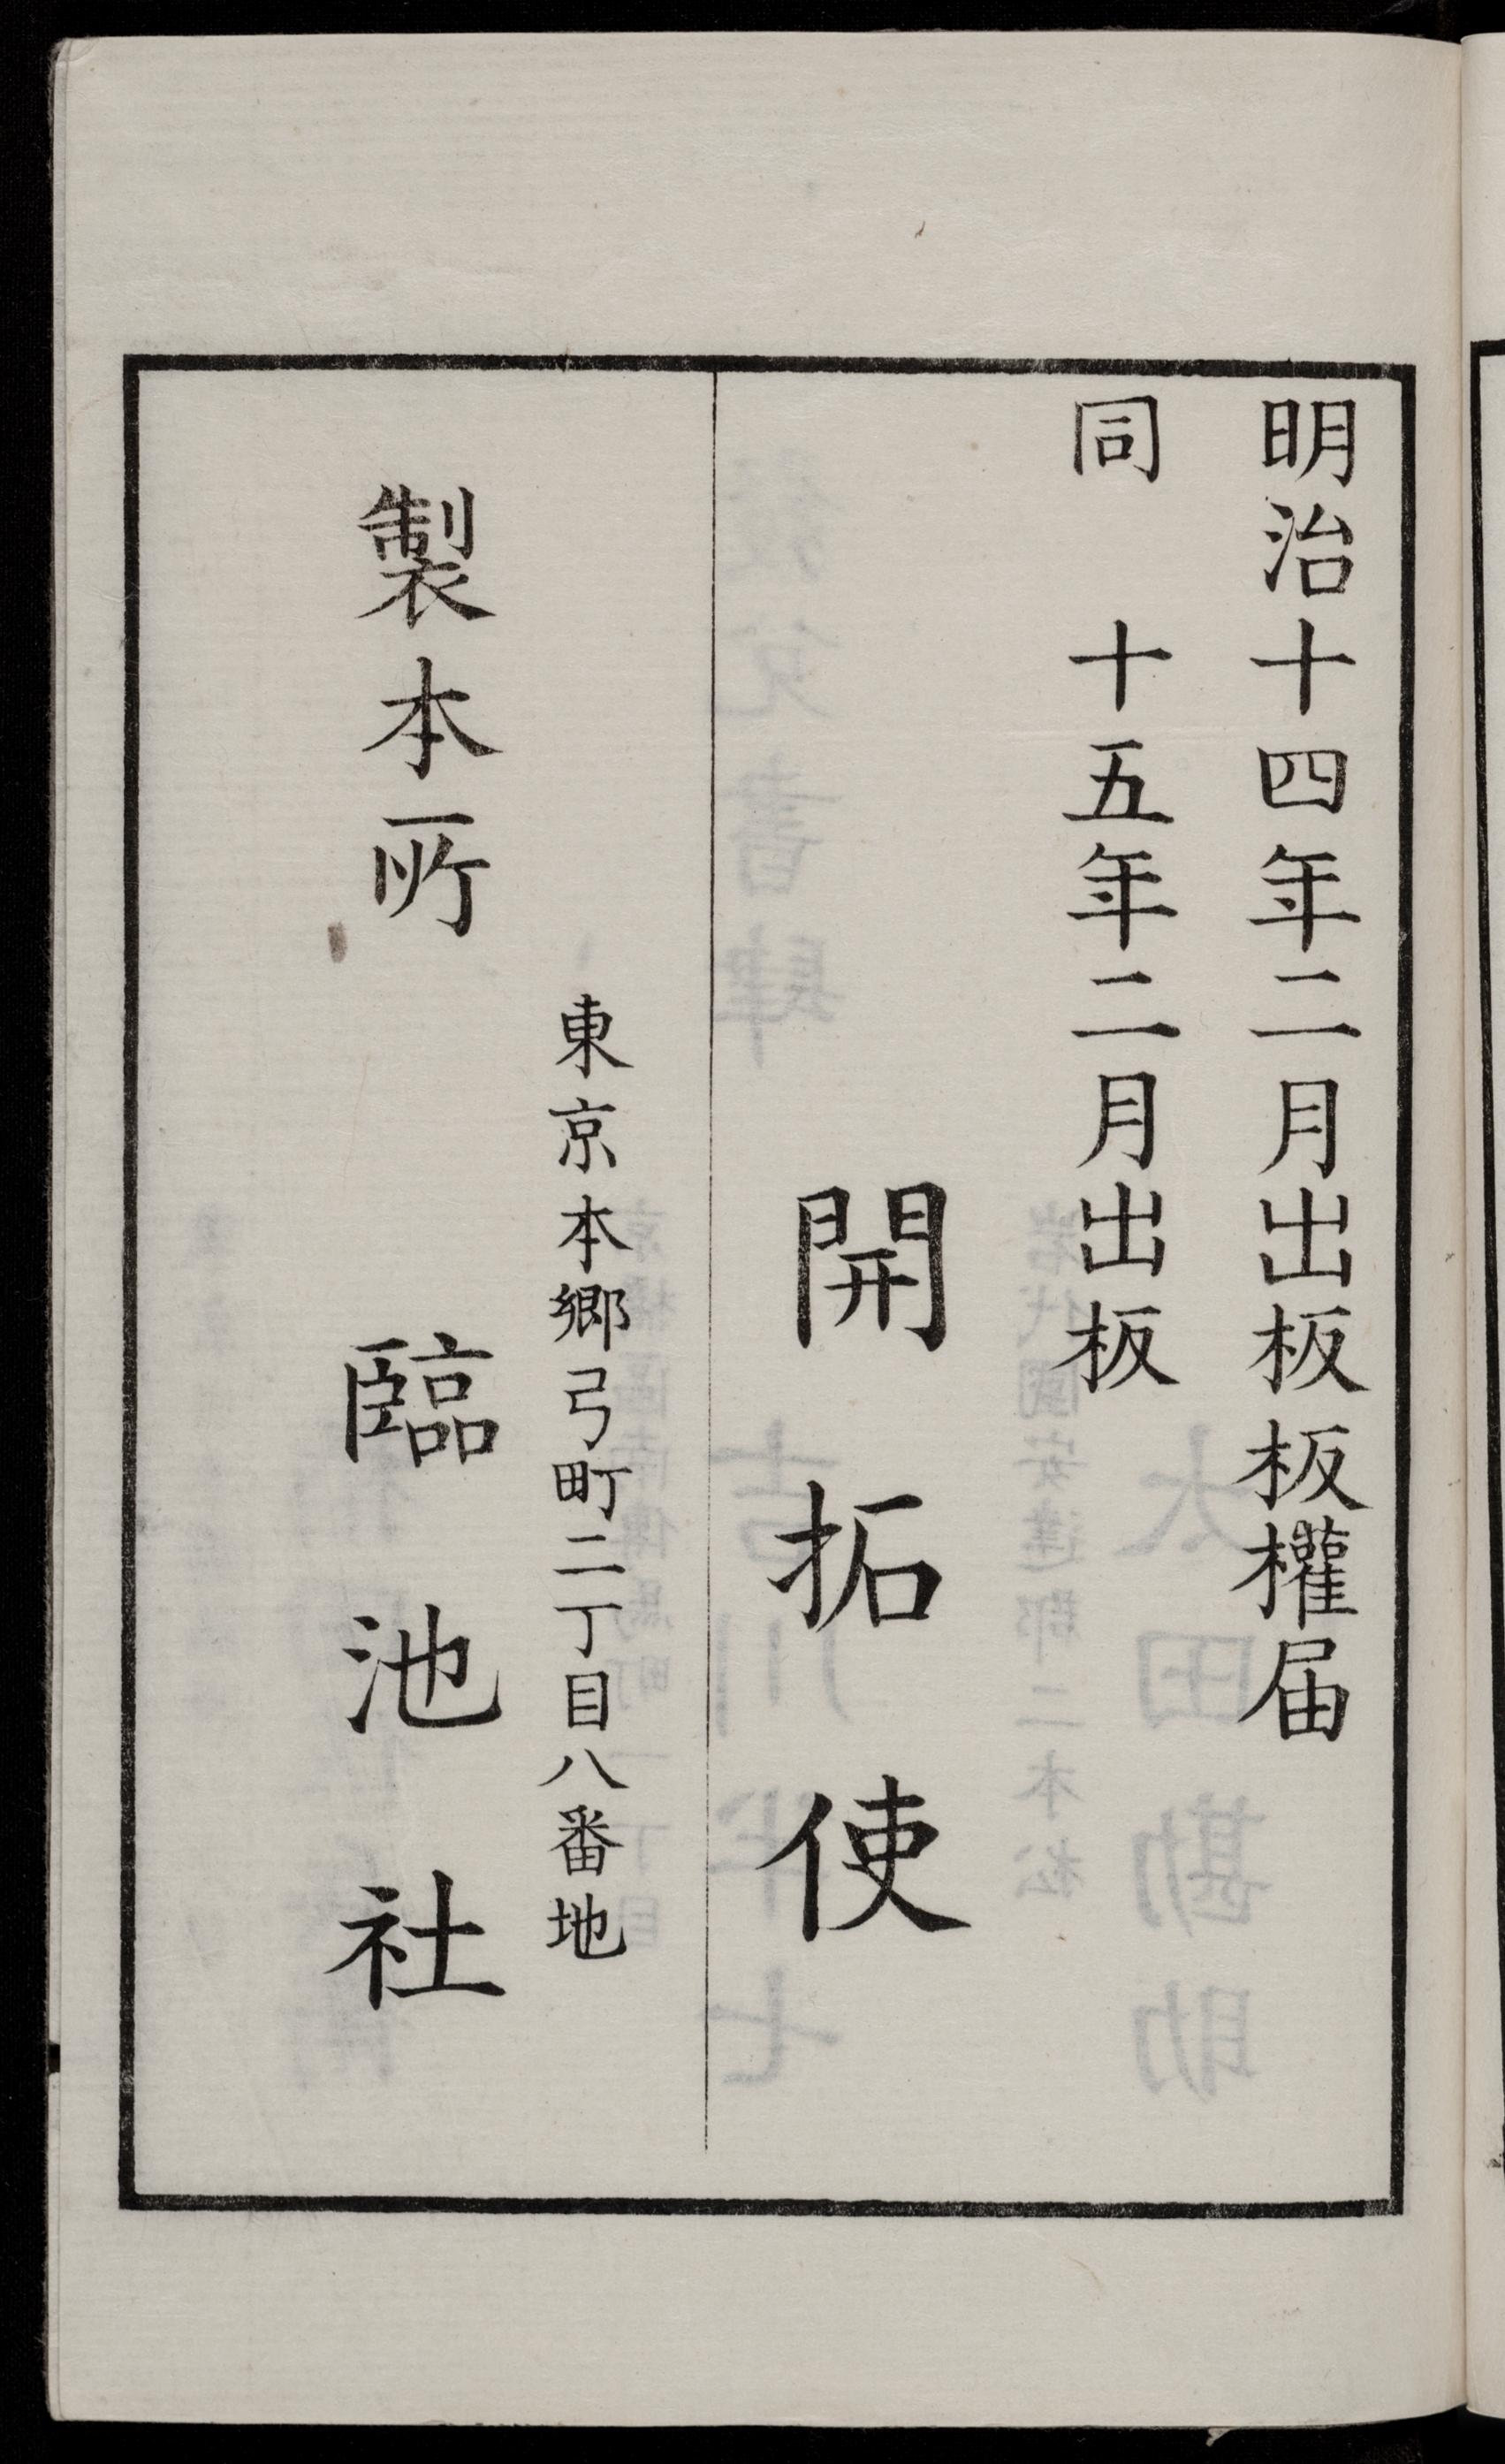 明治十四年二月出板板權届
同　十五年二月出板
開拓使
東京本郷弓町二丁目八番地
製本所　臨池社